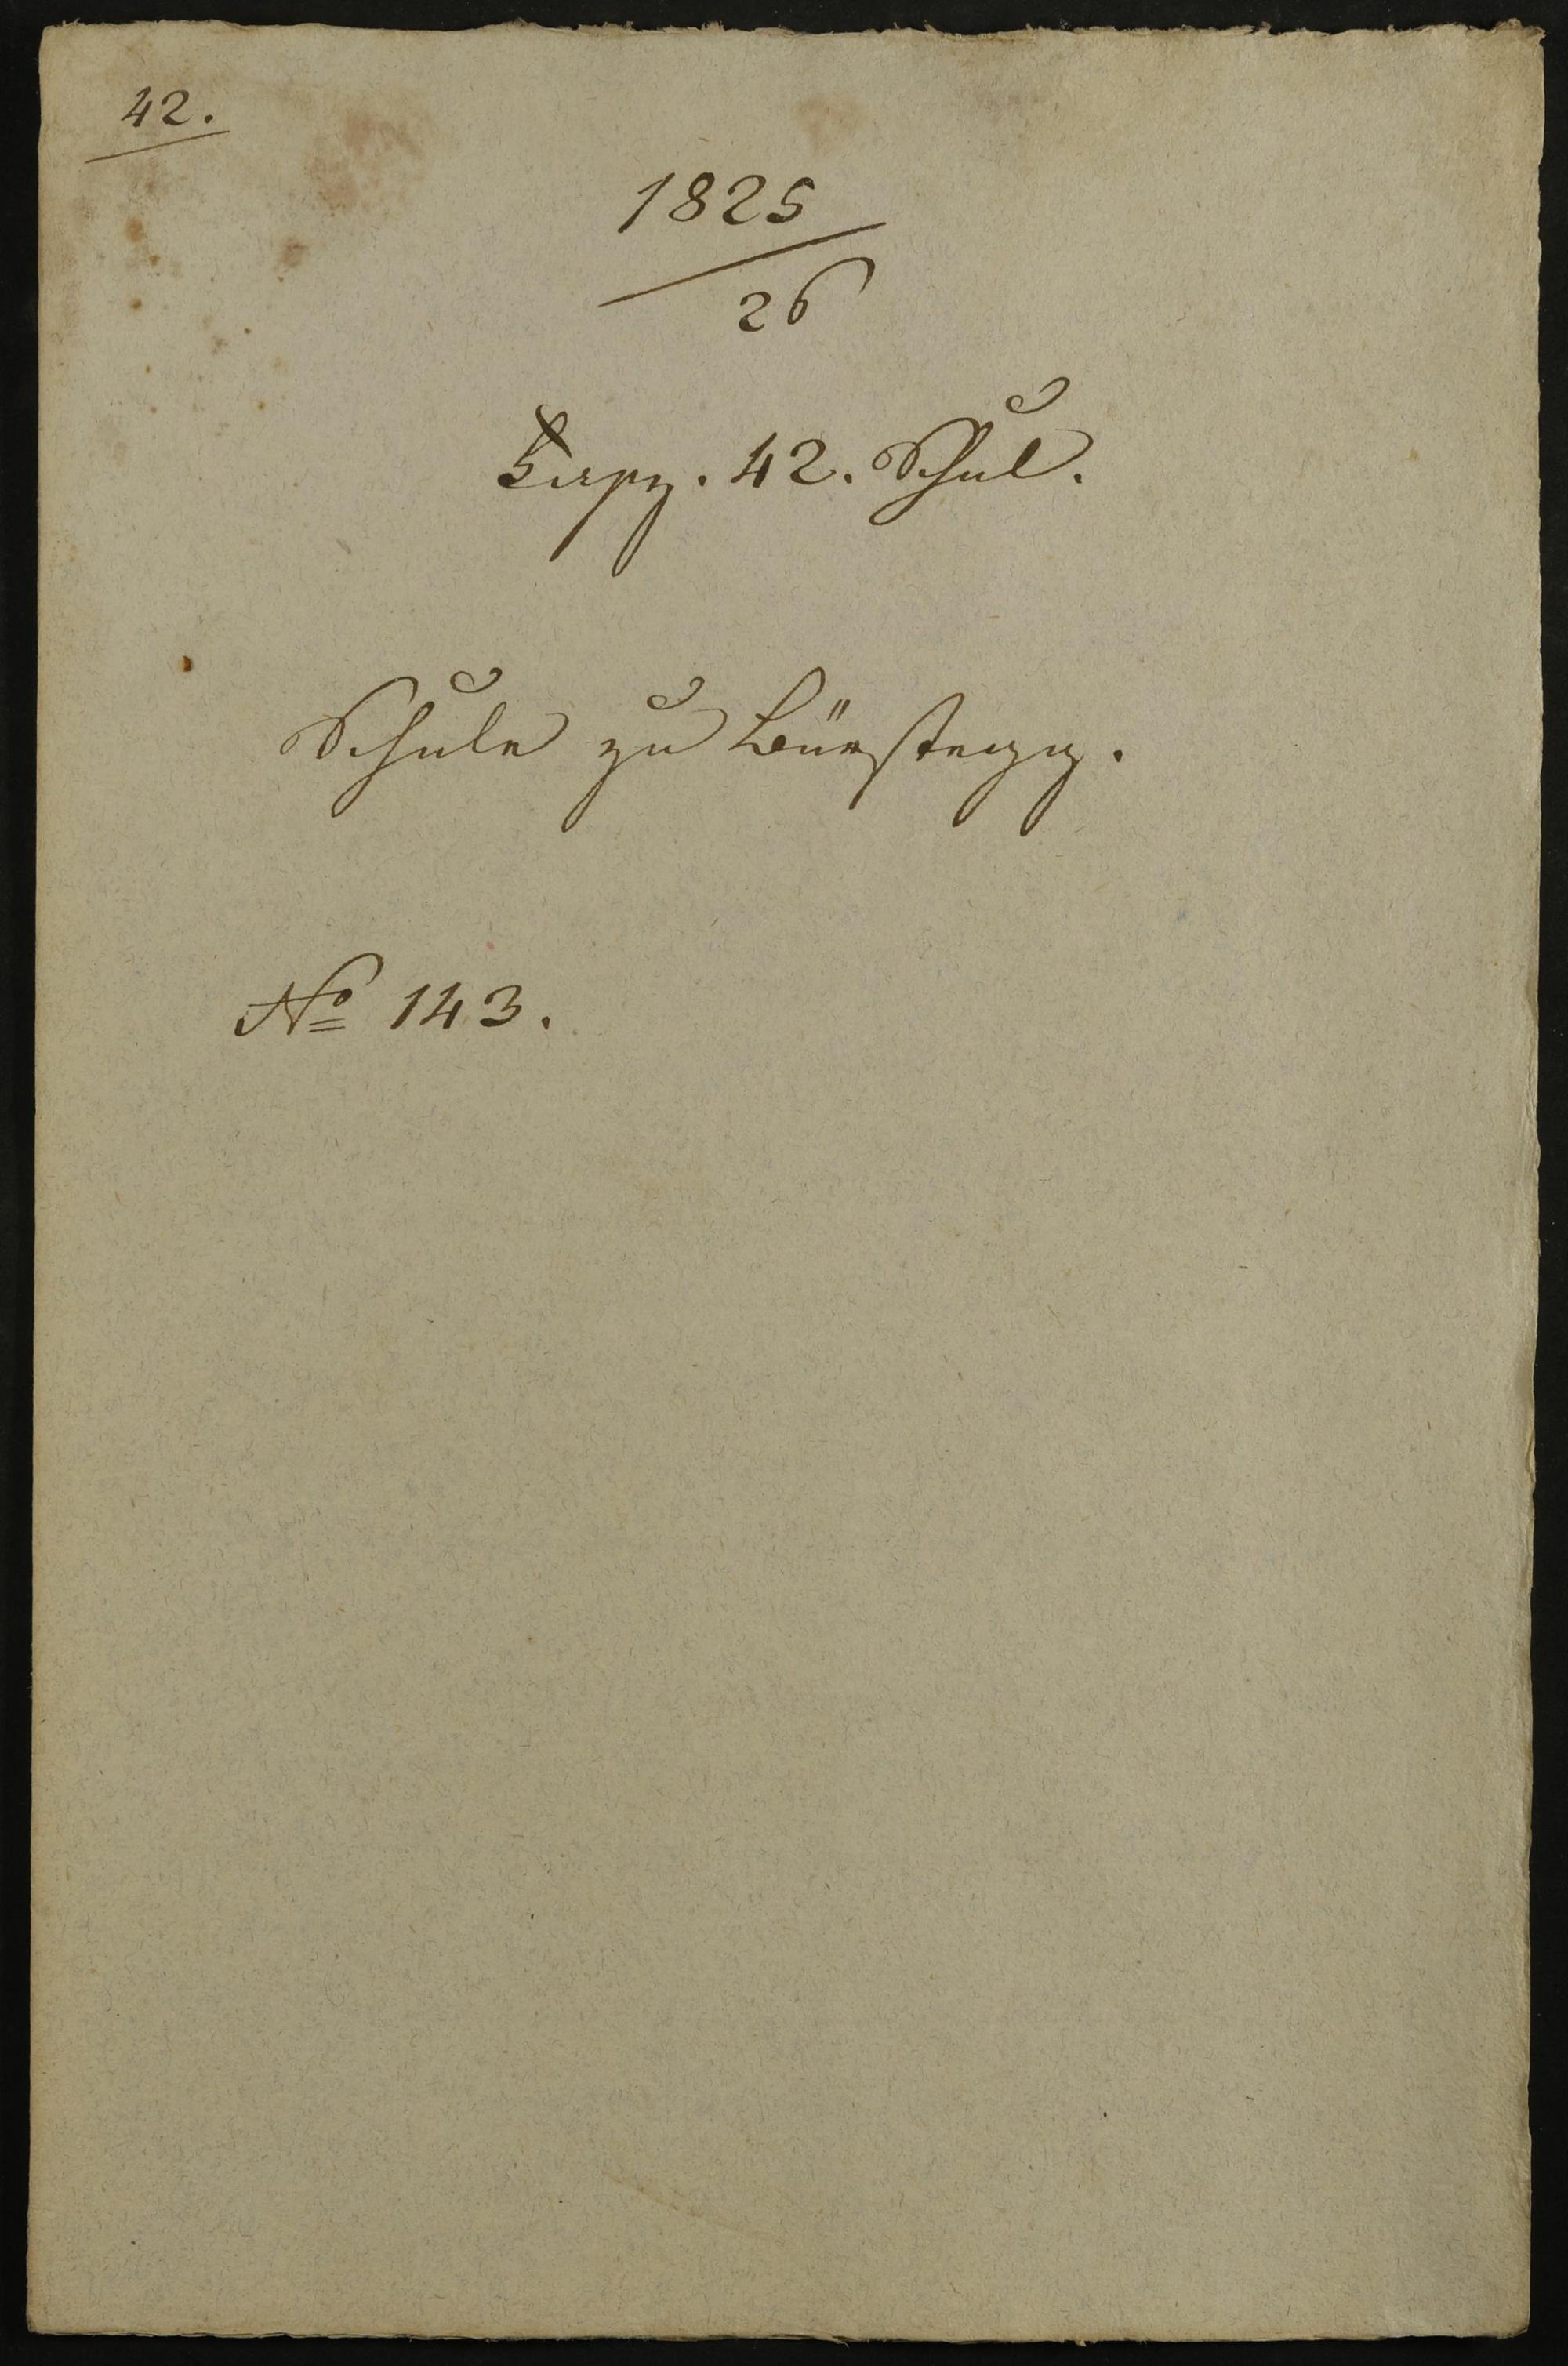 42.
1825
26
Fasz. 42. Schul.
Schule zu Bürstegg.
No 143.